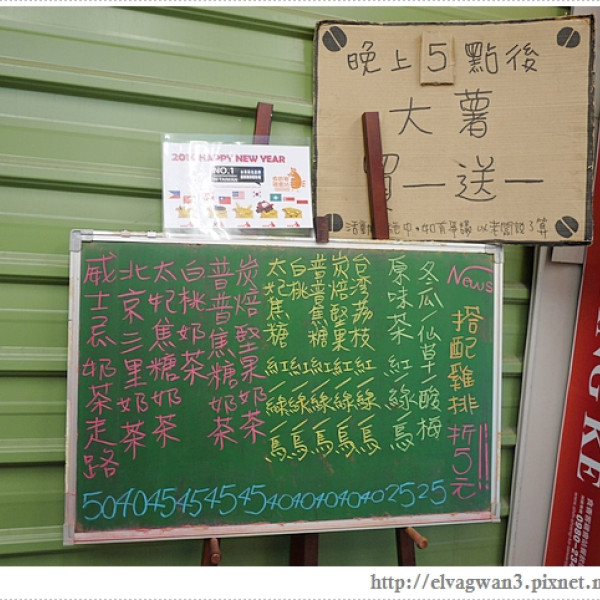 晚上5點後
大薯
買一送一
2016 HAPPY NEW YEAR
NO.1
News
搭配雞排折5元!!
冬瓜/仙草/酸梅 25
原味茶 紅 綠 烏 25
台灣荔枝 紅/綠/烏 40
炭焙堅果 紅/綠/烏 40
普普焦糖 紅/綠/烏 40
白桃 紅/綠/烏 40
太妃焦糖 紅/綠/烏 40
炭焙堅果奶茶 45
普普焦糖奶茶 45
白桃奶茶 45
太妃焦糖奶茶 45
北京三里奶茶 40
威士忌奶茶走路 50
NG KE
http://elvagwan3.pixnet.n